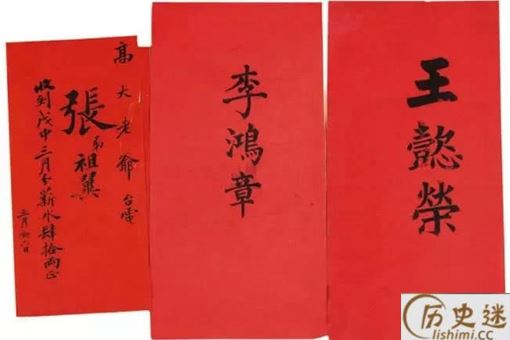 高大老爺台電
張弟祖翼
收到戊申三月分薪水肆拾兩正
三月
李鴻章
王懿榮
历史迷
lishimi.cc